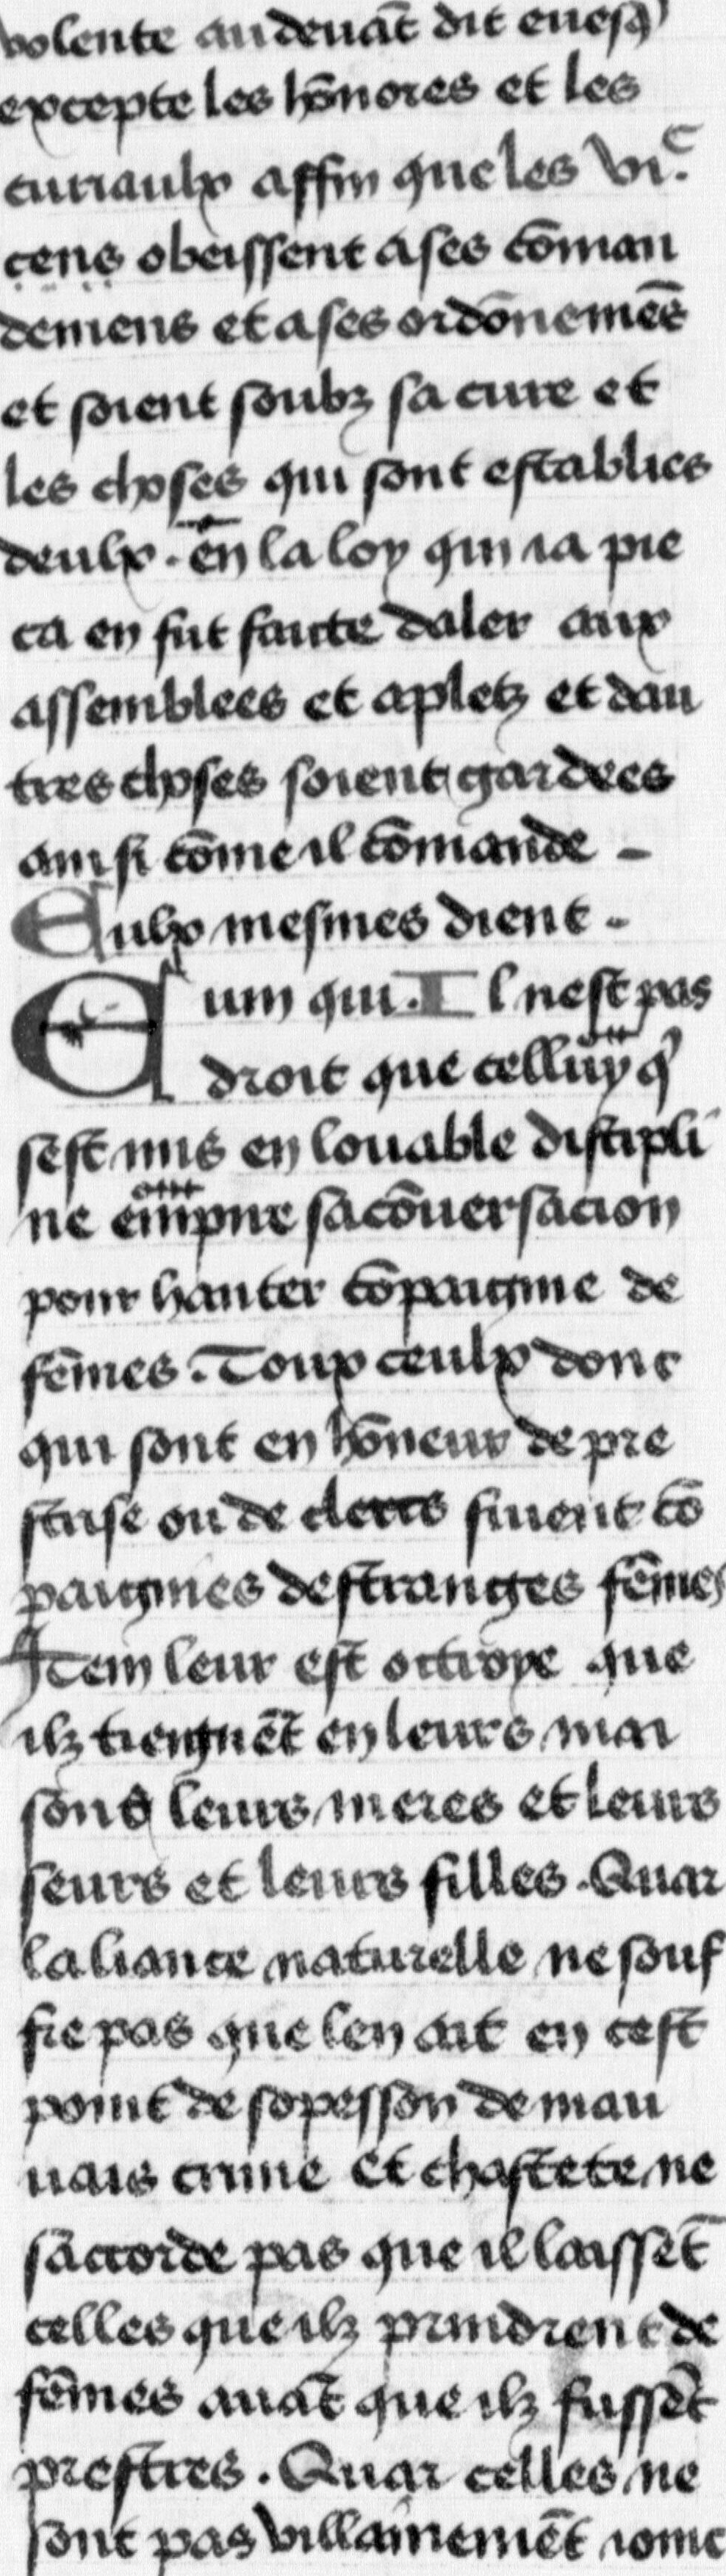 volente audeuāt dit euesq̄
excepte les hōnores et les
curiaulx affin que les vi.ᶜ
cens obeissent a ses cōman
demens et a ses ordōnemēs
et soient soubz sa cure et
les choses qui sont establies
deulx . en la loy qui ia pie
ca en fut faicte daler aux
assemblees et a pletz et dau
tres choses soient gardees
ainsi cōme il cōmande -
Eulx mesmes dient .
Eum qui . Il nest pas
droit que celluy q̄
sest mis en louable discipli
ne empire sa cōuersacion
pour hanter cōpaignie de
fēmes . Toux ceulx donc
qui sont en hōneur de pre
strise ou de clerc fuient cō
paignies destranges fēmes
Item leur est octroye que
ilz tiengnēt en leurs mai
sons leurs meres et leurs
seurs et leurs filles . Quar
laliance naturelle ne souf
fre pas que len ait en cest
point de sopesson de mau
uais crime et chastete ne
saccorde pas que il laissēt
celles que ilz prindrent de
fēmes auāt que ilz fussēt
prestres . Quar celles ne
sont pas villainemēt ioinc